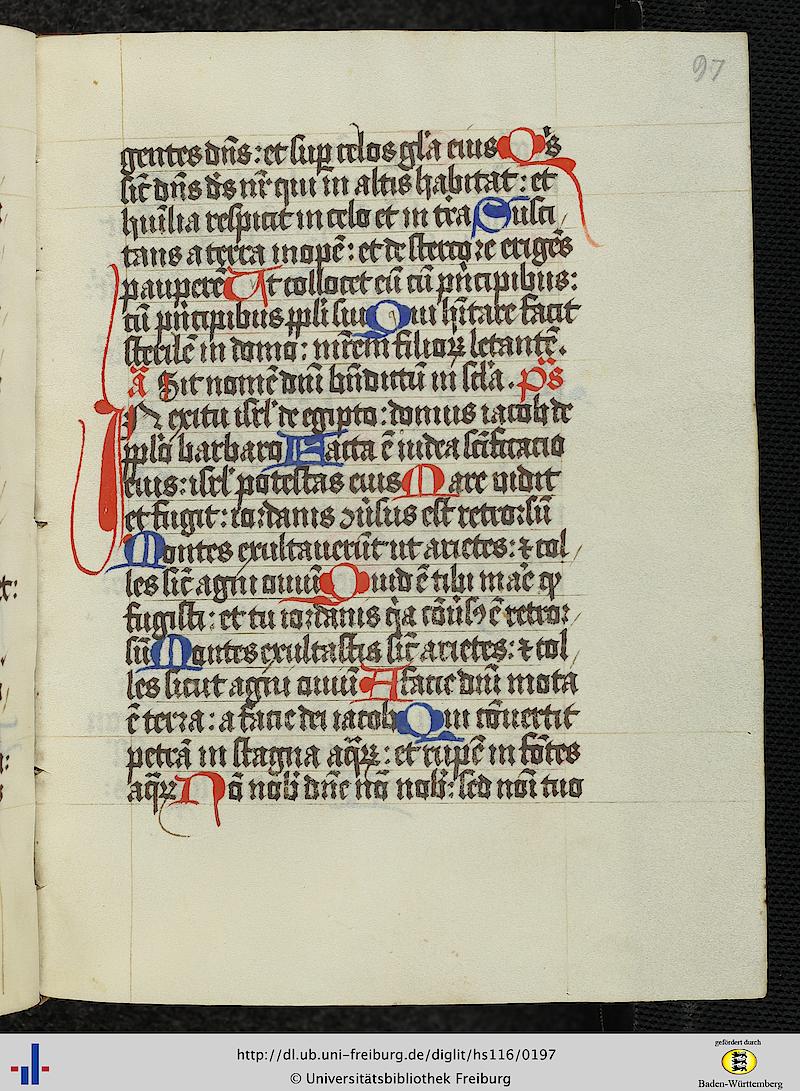 97
gentes dn̄s: et sup̄ celos gl̓a eius Q̓s
sic̄ dn̄s ds̄ nr̄ qui in altis habitat: et
hu̅ilia respicit in celo et in tr̄a Susci/
tans a terra inopē: et de stercore erigēs
pauperē Ut collocet eū cū pn̄cipibus:
cū pn̄cipibus ppl̓i sui Qui hītare facit
sterilē in domo: mr̄em filioꝝ letantē.
a̅ Sit nomē dn̄i bn̄dictū in scl̓a. p̄s
IN exitu isrl̓ de egipto: domus iacob de
ppl̓o barbaro Facta ē iudea scīficacio
eius: isrl̓ potestas eius Mare vidit
et fugit: iordanis ꝯūsus est retrorsū
Montes exultauerūt ut arietes: ⁊ col/
les sic̄ agni ouiū Quid ē tibi mar̄e qp̄
fugisti: et tu iordanis q̓a cōūsꝰ ē retror/
sū Montes exultastis sic̄ arietes: ⁊ col/
les sicut agni ouiū A facie dn̄i mota
ē terra: a facie dei iacob Qui cōuertit
petrā in stagna aq̄ꝝ: et rupē in fōtes
aq̄ꝝ Nō nob̓ dn̄e nō nob̓: sed noī tuo
http://dl.ub.uni-freiburg.de/diglit/hs116/0197
© Universitätsbibliothek Freiburg
gefördert durch
Baden-Württemberg